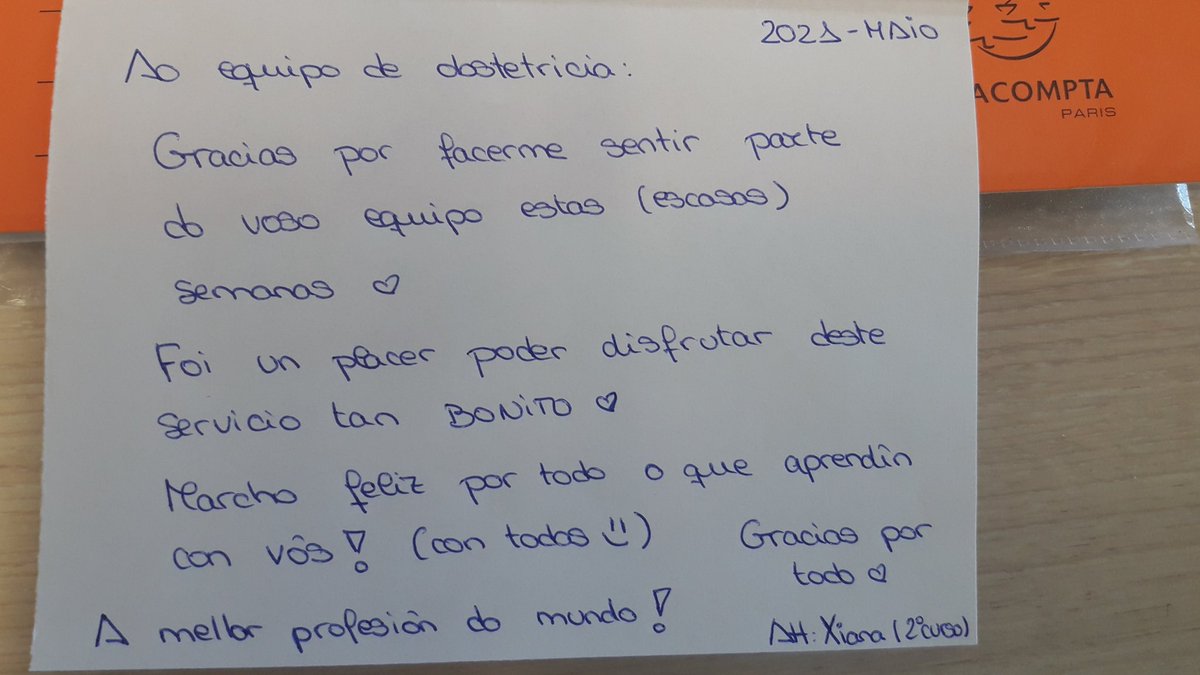 2021-MAIO
ACOMPTA
PARIS
Ao equipo de obstetricia:
Gracias por facerme sentir parte
do voso equipo estas (escasas)
semanas ♡
Foi un placer poder disfrutar deste
servicio tan BONITO ♡
Marcho feliz por todo o que aprendín
con vós! (con todas :))
Gracias por
todo ♡
A mellor profesión do mundo!
Att: Xiana (2º curso)